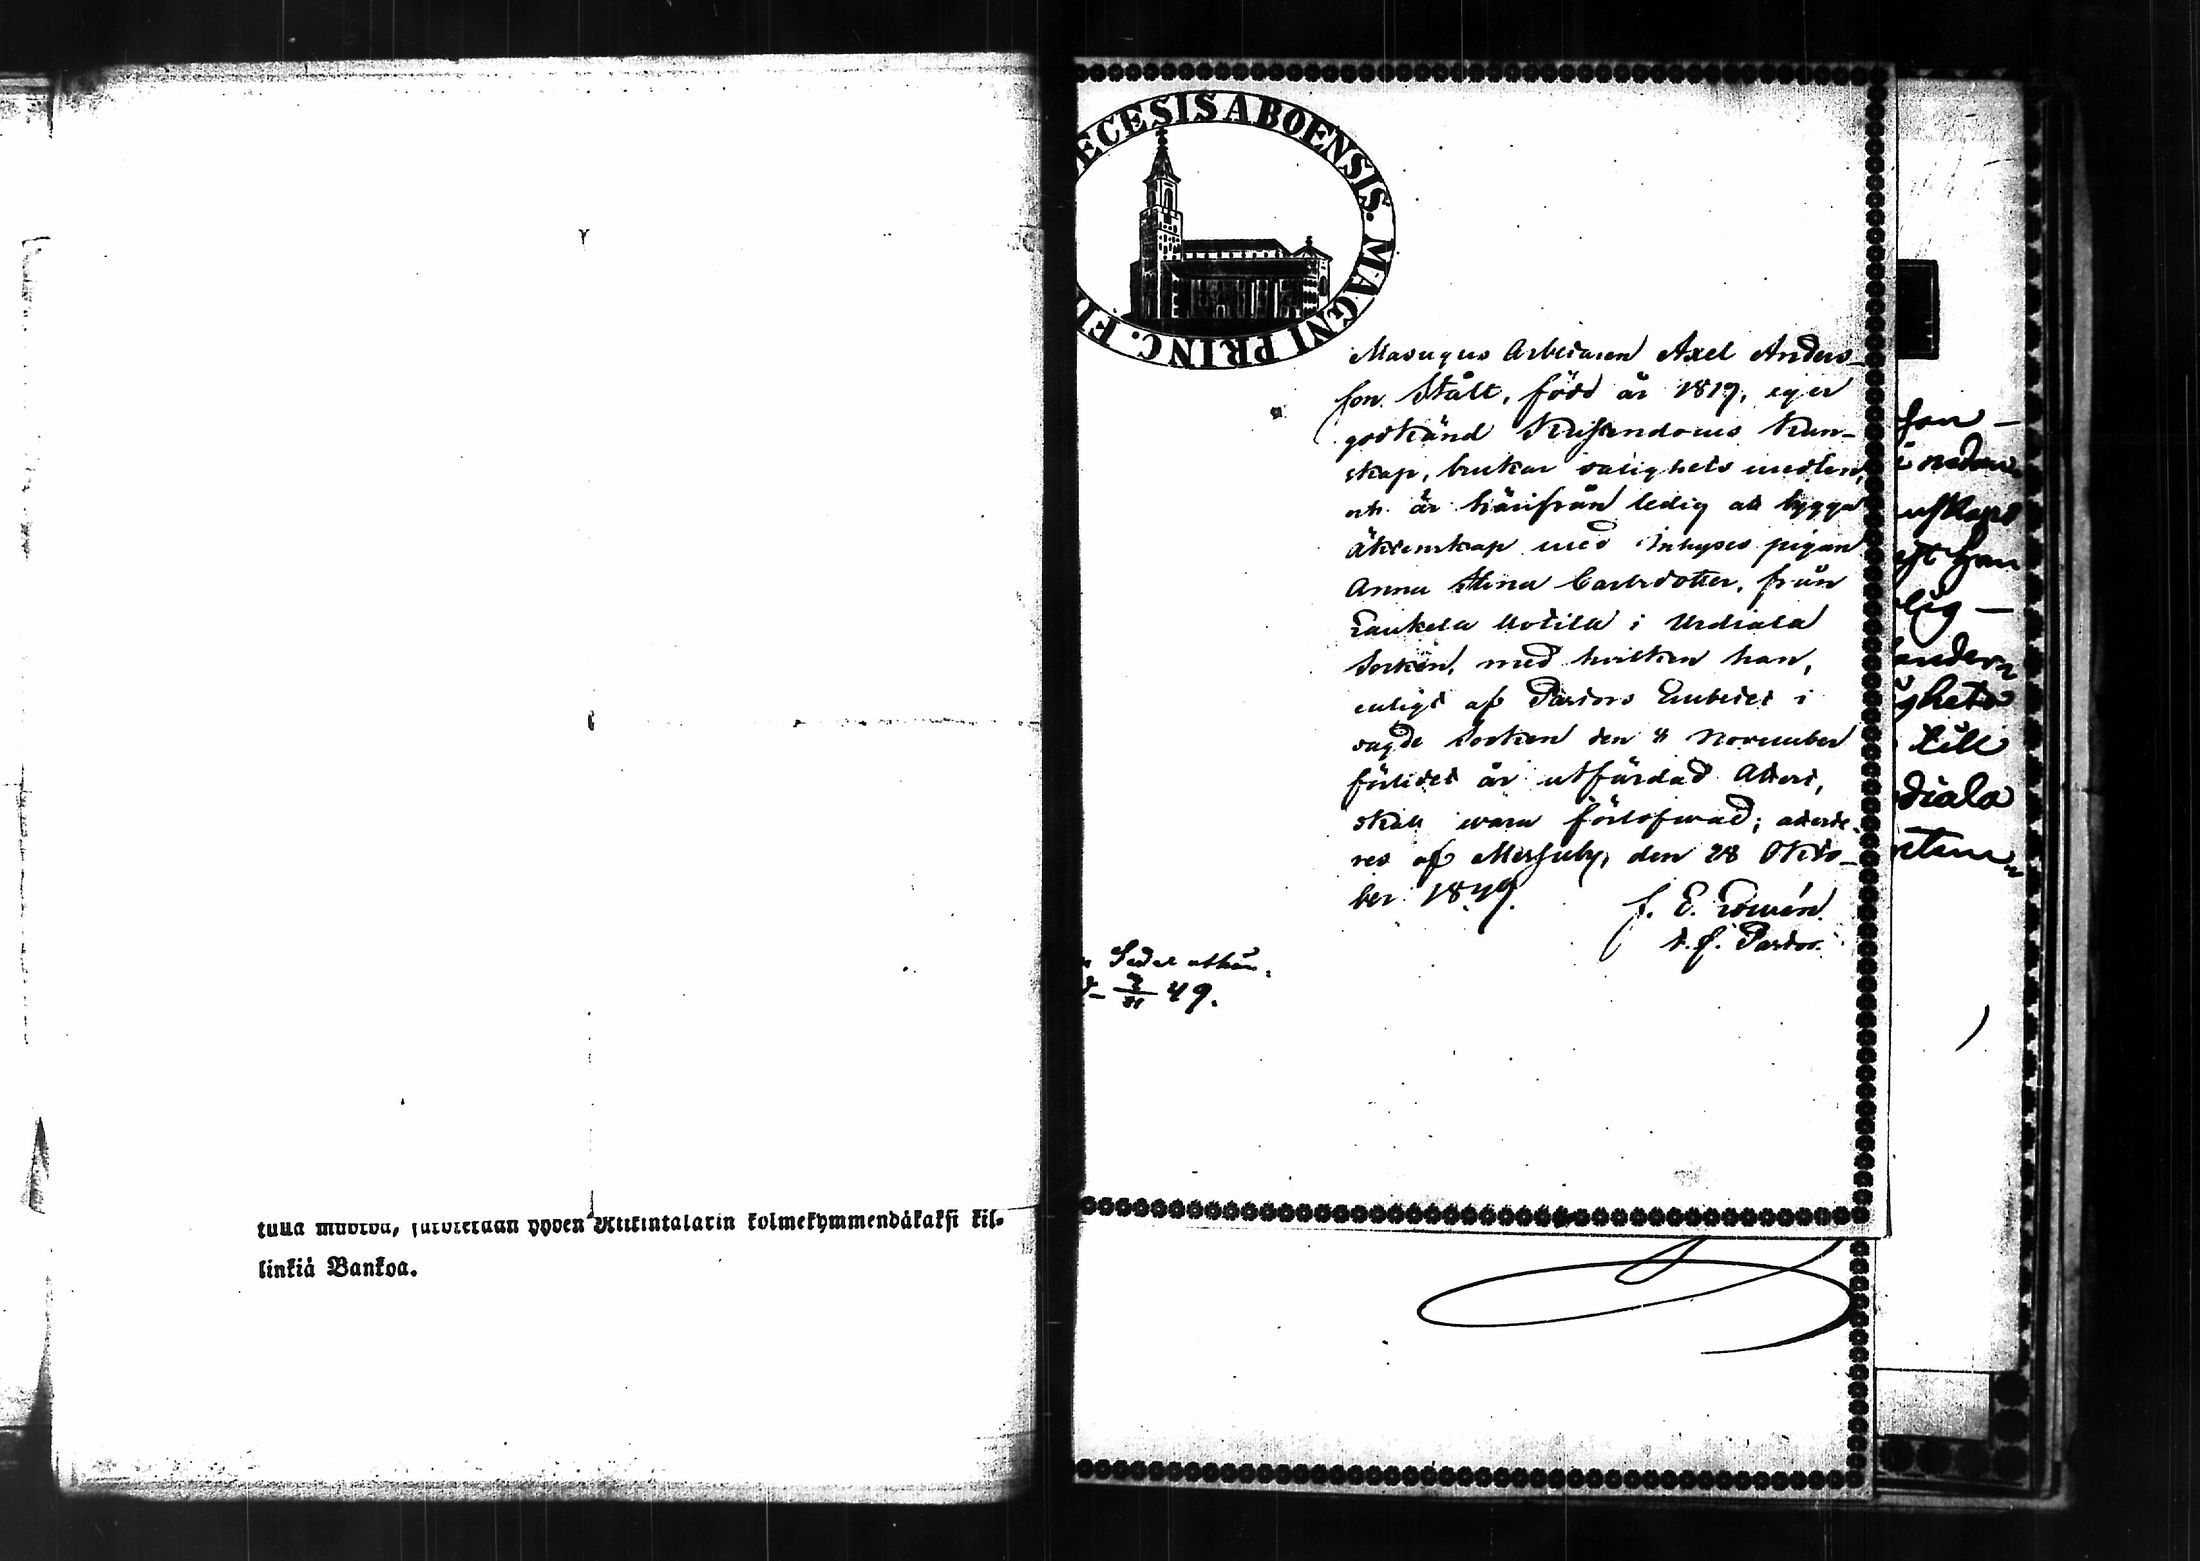 tulla muotoa, sakotetaan yyden Riikintalarin kolmekymmendäkaksi kil-
linkiä Bankoa.
ECESIS ABOENSIS. MAGNI PRINC. FI
Masugns Arbetaren Axel Anders-
son Ståll, född år 1819, eger
godkänd Kristendoms kun-
skap, brukar salighets medlen,
och är härifrån ledig att bygga
äktenskap med Inhyses pigan
Anna Stina Carlsdotter, från
Laukela Uotila i Urdiala
Socken, med hvilken han,
enligt af Pastors Embetet i
sagde Socken den 8 November
förlidet år utfärdad Attest,
skall wara förlofwad; atteste-
res af Messuby, den 28 Okto-
ber 1849.
t. f. Pastor.
49.
son -
nedan
unskaps
han
lig -
ander
ghets
till
diala